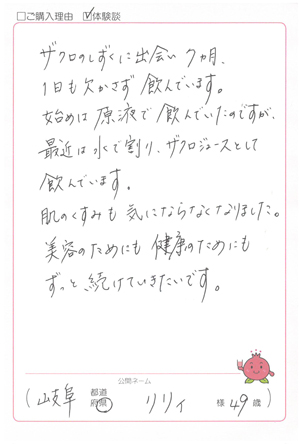 □ご購入理由 ☑体験談
ザクロのしずくに出会い7ヵ月、
1日も欠かさず飲んでいます。
始めは原液で飲んでいたのですが、
最近は水で割り、ザクロジュースとして
飲んでいます。
肌のくすみも気にならなくなりました。
美容のためにも健康のためにも
ずっと続けていきたいです。
公開ネーム
(岐阜 都道府県 リリィ 様 49歳)